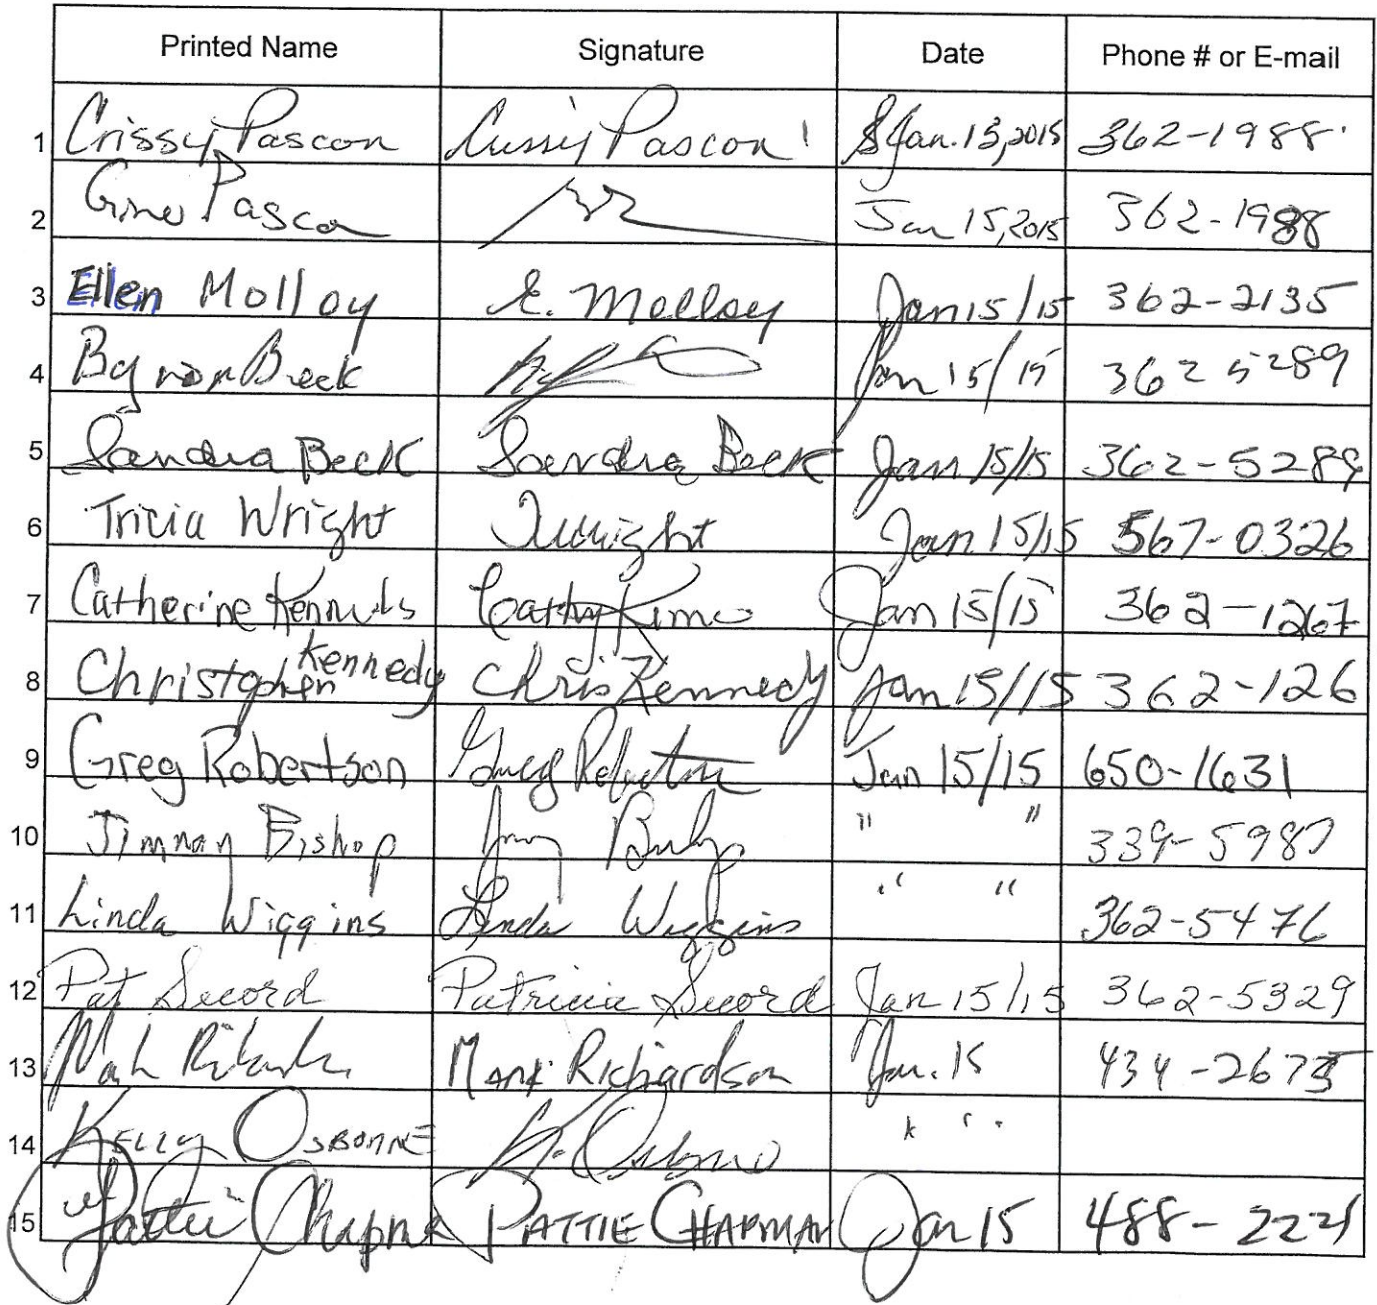 Printed Name Signature Date Phone # or E-mail
1 Crissy Pascon Crissy Pascon Jan. 13, 2015 362-1988
2 Gino Pasco Jan 15, 2015 362-1988
3 Ellen Molloy E. Molloy Jan 15/15 362-2135
4 Byron Beck Jan 15/15 362 5289
5 Sandra Beck Sandra Beck Jan 15/15 362-5289
6 Tricia Wright TWright Jan 15/15 567-0326
7 Catherine Cathy Jan 15/15 362-1267
8 Christopher Kennedy Chris Kennedy Jan 15/15 362-126
9 Greg Robertson Greg Robertson Jan 15/15 650-1631
10 Jimmay Bishop " " 339-5987
11 Linda Wiggins Linda Wiggins " " 362-5476
12 Pat Secord Patricia Secord Jan 15/15 362-5329
13 Mark Richardson Jan. 15 434-2675
14 KELLY OSBORNE K. Osborne " "
15 Pattie PATTIE CHAPMAN Jan 15 488-2221